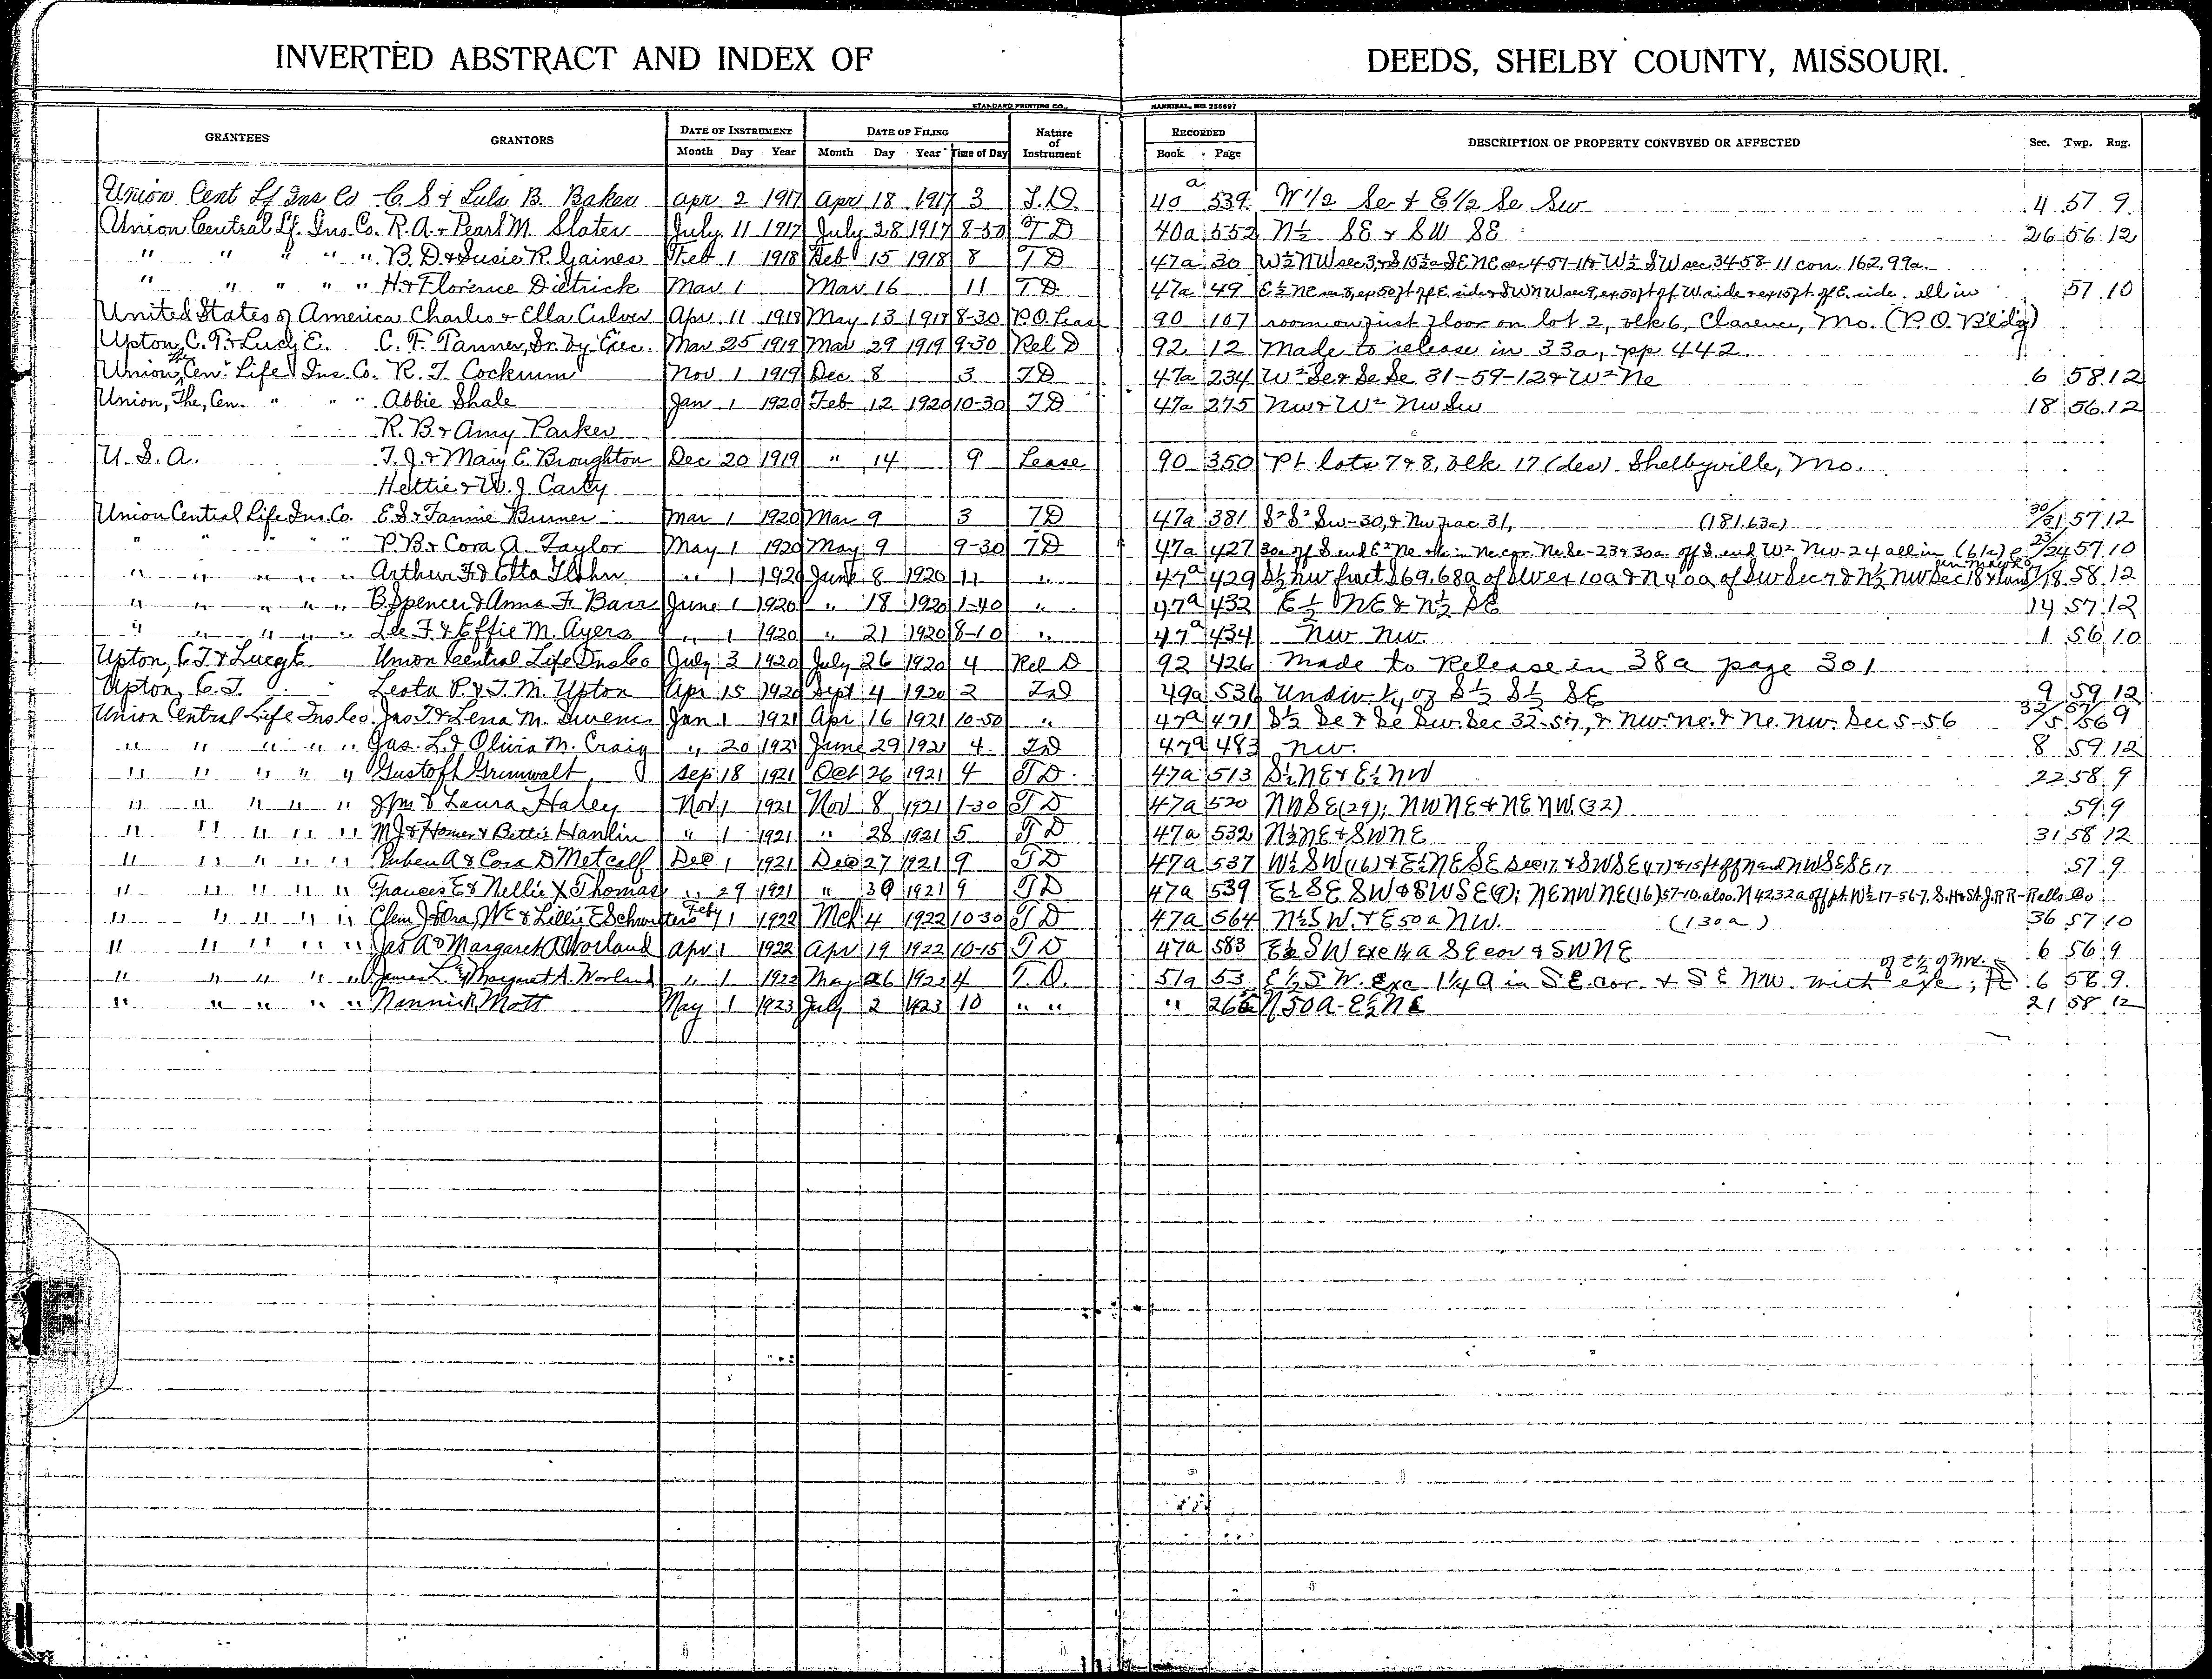 INVERTED ABSTRACT AND INDEX OF DEEDS, SHELBY COUNTY, MISSOURI.
STANDARD PRINTING CO., HANNIBAL, MO. 256697
GRANTEES GRANTORS DATE OF INSTRUMENT DATE OF FILING Nature of Instrument RECORDED DESCRIPTION OF PROPERTY CONVEYED OR AFFECTED Sec. Twp. Rng.
Month Day Year Month Day Year Time of Day Book Page
Union Cent Lf Ins Co C. S & Lula B. Baker Apr 2 1917 Apr 18 1917 3 T.D. 40a 539 W 1/2 Se & E 1/2 Se Sw 4 57 9
Union Central Lf. Ins. Co. R. A. & Pearl M. Slater July 11 1917 July 28 1917 8-30 T D 40a 552 N½ SE & SW SE 26 56 12
" " " " " B. D. & Susie R. Gaines Feb 1 1918 Feb 15 1918 8 T D 47a 30 W½ NW sec 3, & S 15½a SE NE sec 4-57-11 & W½ SW sec 34-58-11 con. 162.99a.
" " " " " H. & Florence Dietrick Mar 1 Mar 16 11 T D 47a 49 E½ NE sec 8, ex 50 ft off E. side & SW NW sec 9, ex 50 ft off W. side & ex 15 ft off E. side. all in 57 10
United States of America Charles & Ella Culver Apr 11 1918 May 13 1918 8-30 P.O. Lease 90 107 room on first floor on lot 2, blk 6, Clarence, Mo. (P.O. Bldg)
Upton, C. T. & Lucy E. C. F. Tanner, Sr. by Exec. Mar 25 1919 Mar 29 1919 9-30 Rel D 92 12 Made to release in 33a, pp 442.
Union Cen. Life Ins. Co. R. T. Cockrum Nov 1 1919 Dec 8 3 T D 47a 234 W² Se & Se Se 31-59-12 & W² Ne 6 58 12
Union, The, Cen. " " " Abbie Shale Jan 1 1920 Feb 12 1920 10-30 T D 47a 275 Nw & W² Nw Sw 18 56 12
R. B. & Amy Parker
U. S. A. T. J. & Mary E. Broughton Dec 20 1919 " 14 9 Lease 90 350 Pt. lots 7 & 8, blk 17 (des) Shelbyville, Mo.
Hettie & W. J. Carty
Union Central Life Ins. Co. E. S. & Fannie Burner Mar 1 1920 Mar 9 3 T D 47a 381 S² S² Sw-30, & Nw frac 31, (181.63a) 30/31 57 12
" " " " " P. B. & Cora A. Taylor May 1 1920 May 9 9-30 T D 47a 427 30a off S end E² Ne & in Ne cor. Ne Se-23 & 30a off S. end W² Nw-24 all in (61a) 23/24 57 10
" " " " " Arthur F. & Etta " 1 1920 June 8 1920 11 " 47a 429 S½ NW fract & 69.68a of SW ex 10a & N 40a of SW Sec 7 & N½ NW Sec 18 7/18 58 12
" " " " " B Spencer & Anna F. Barr June 1 1920 " 18 1920 1-40 " 47a 432 E½ NE & N½ SE 14 57 12
" " " " " Lee F. & Effie M. Ayers " 1 1920 " 21 1920 8-10 " 47a 434 NW NW. 1 56 10
Upton, C. T. & Lucy E. Union Central Life Ins Co July 3 1920 July 26 1920 4 Rel D 92 426 Made to Release in 38a page 301
Upton, C. T. Leota P. & T. M. Upton Apr 15 1920 Sept 4 1920 2 49a 536 Undiv. ¼ of S½ S½ SE 9 59 12
Union Central Life Ins Co. Jas T. & Lena M. Jan 1 1921 Apr 16 1921 10-50 " 47a 471 S½ Se & Se Sw. Sec 32-57, & Nw. Ne. & Ne. Nw. Sec 5-56 32/5 57/56 9
" " " " " Jas. L. & Olivia M. Craig " 20 1921 June 29 1921 4 T D 47a 483 NW. 8 59 12
" " " " " Gustoff Grimwalt Sep 18 1921 Oct 26 1921 4 T D 47a 513 S½ NE & E½ NW 22 58 9
" " " " " Jno. & Laura Haley Nov 1 1921 Nov 8 1921 1-30 T D 47a 520 NW SE (29); NW NE & NE NW. (32) 59 9
" " " " " M J & Homer & Bettie Hanlin " 1 1921 " 28 1921 5 T D 47a 532 N½ NE & SW NE 31 58 12
" " " " " Ruben A & Cora D Metcalf Dec 1 1921 Dec 27 1921 9 T D 47a 537 W½ SW (16) & E½ NE SE Sec 17 & SW SE (17) & 15 ft off N end NW SE SE 17 57 9
" " " " " Frances E & Nellie Thomas " 29 1921 " 30 1921 9 T D 47a 539 E½ SE SW & SW SE (9); NE NW NE (16) 57-10. also. N 42.32a off pt. W½ 17-56-7. S. H & St. J. RR-Ralls Co
" " " " " Clem J & Ora, W E & Lillie E Schwieters Feby 1 1922 Mch 4 1922 10-30 T D 47a 564 N½ SW. & E 50a NW. (130a) 36 57 10
" " " " " Jas A & Margaret A Worland Apr 1 1922 Apr 19 1922 10-15 T D 47a 583 E½ SW exc 1¼ a SE cor & SW NE 6 56 9
" " " " " James L. & Margaret A. Worland " 1 1922 May 26 1922 4 T. D. 51a 53 E½ SW. Exc 1¼ a in S E cor. & S E NW. of E½ of NW. 6 56 9
" " " " " Nannie K. Mott May 1 1923 July 2 1923 10 " " " 266 N 50a - E½ NE 21 58 12